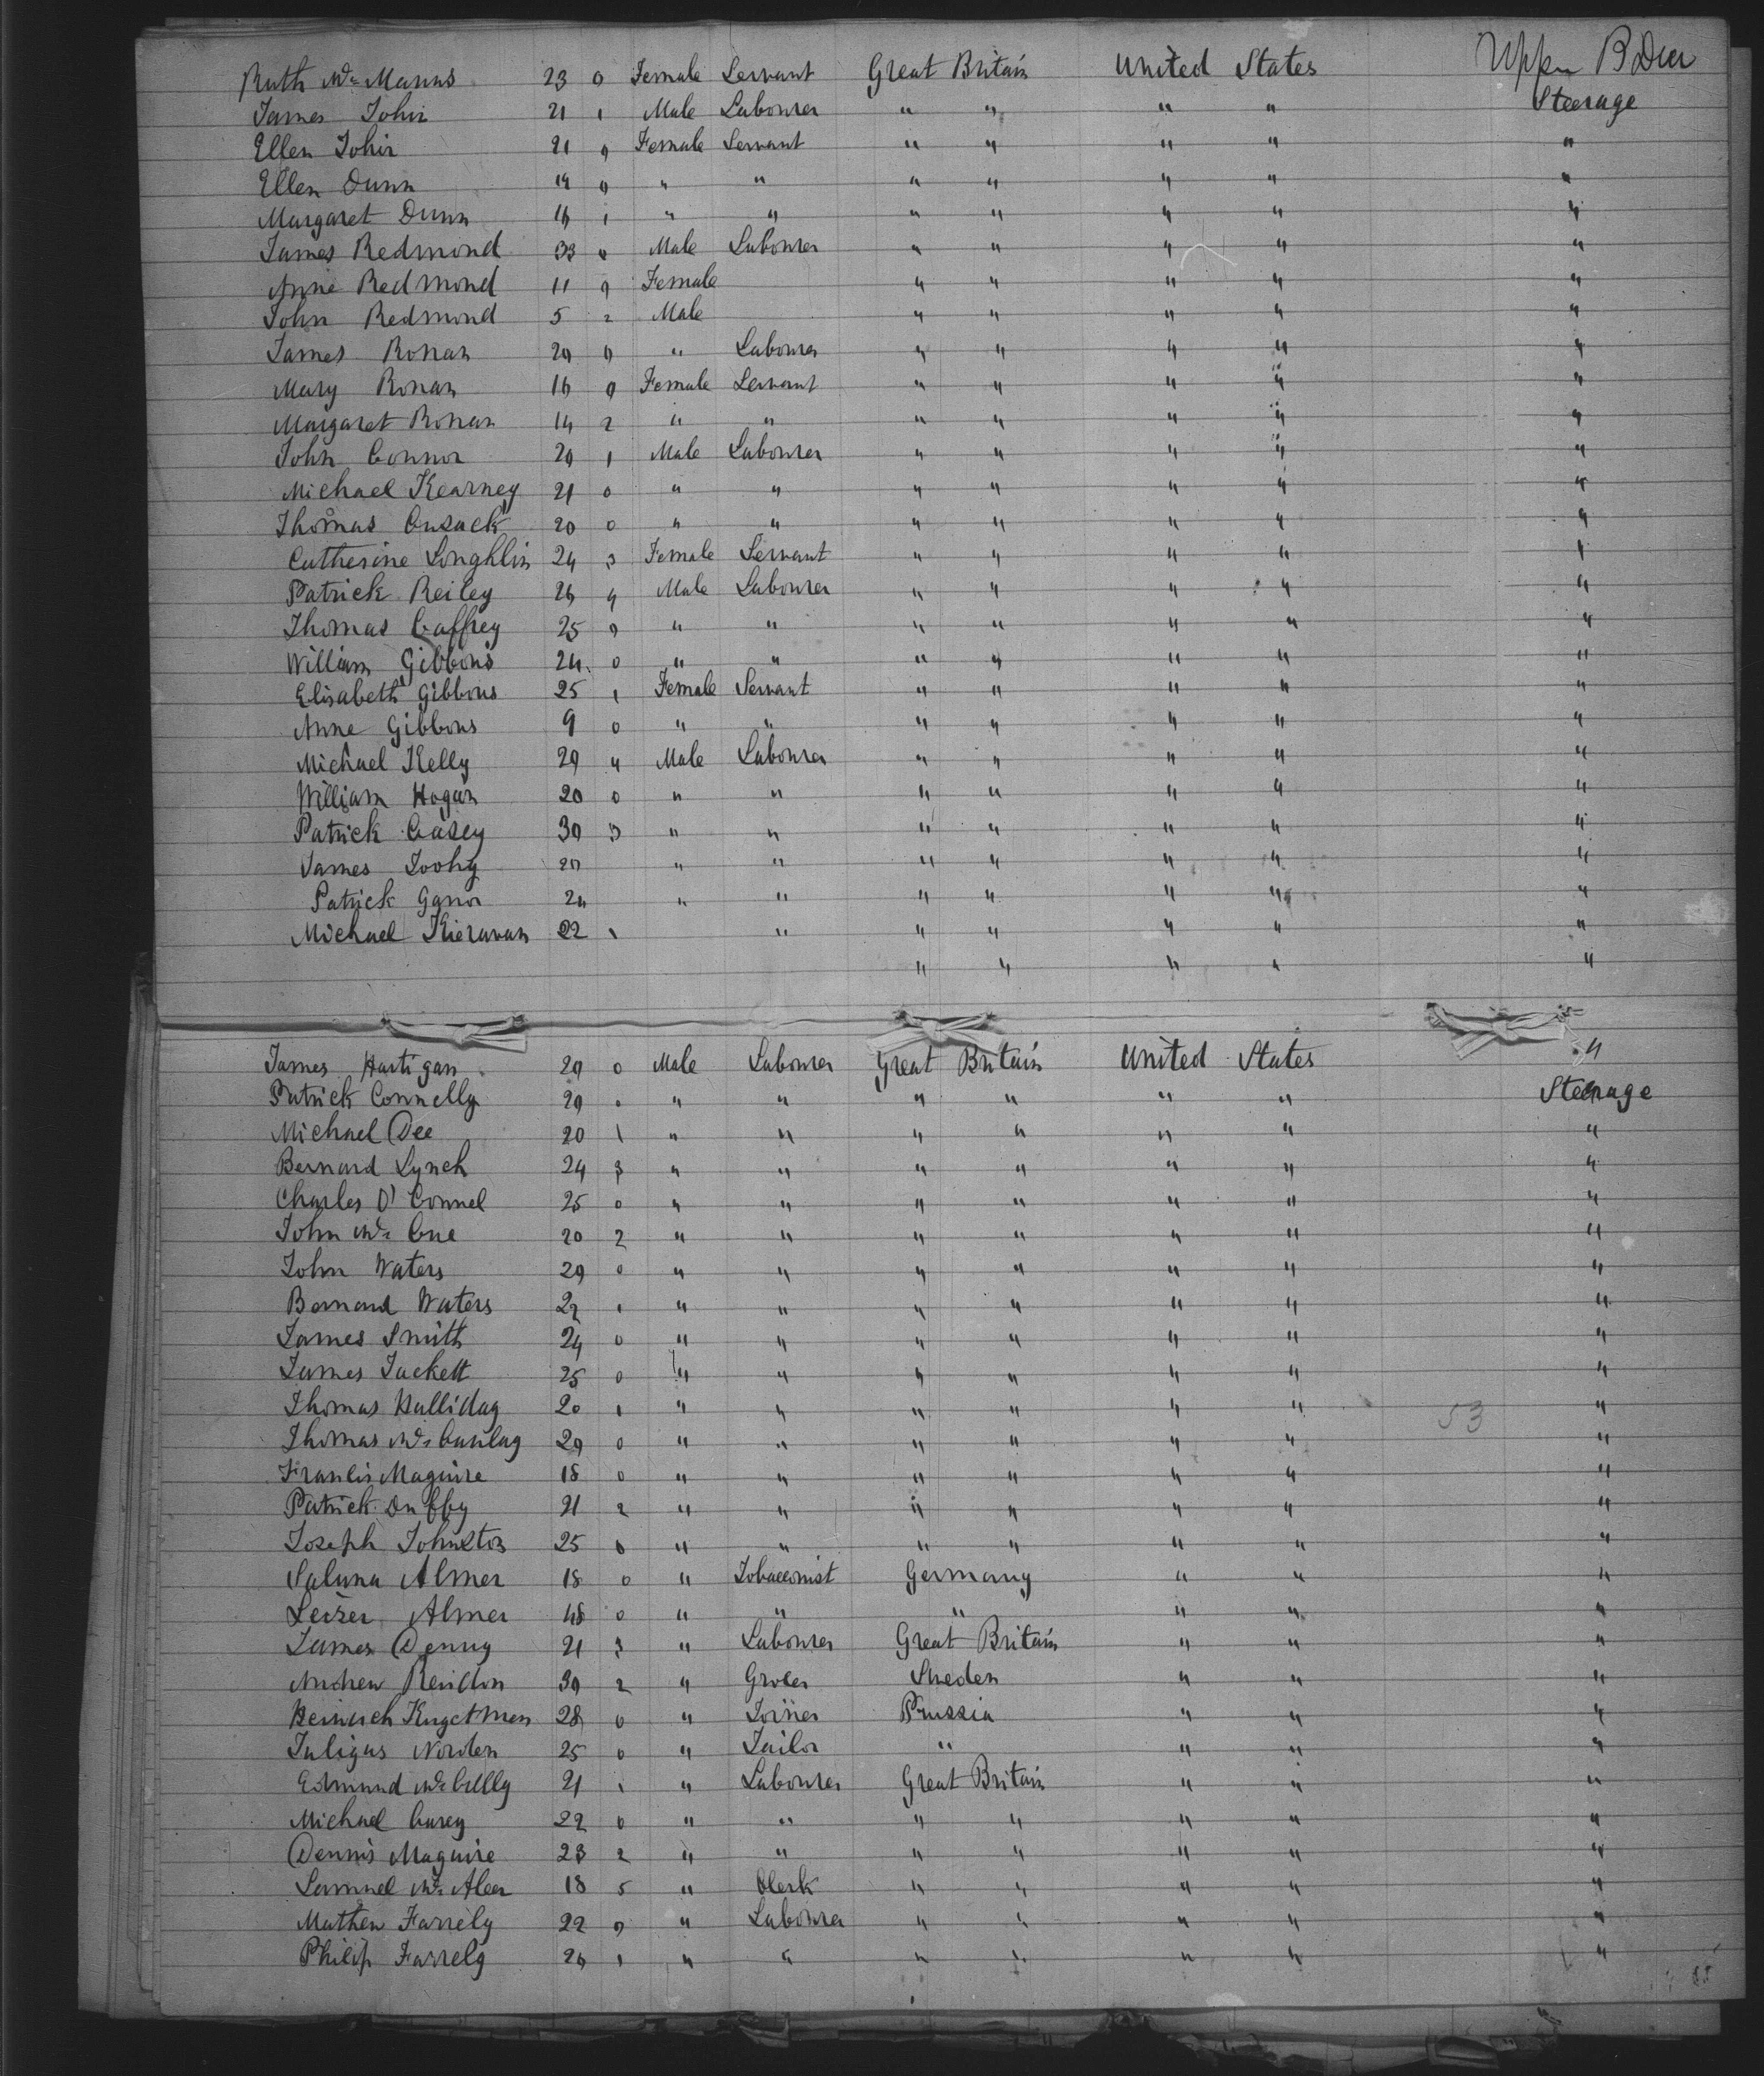 Ruth Mc Manus 23 0 Female Servant Great Britain United States Upper
James Tohir 21 1 Male Labourer " " " " Steerage
Ellen Tohir 21 0 Female Servant " " " " "
Ellen Dunn 19 0 " " " " " " "
Margaret Dunn 16 1 " " " " " " "
James Redmond 33 0 Male Labourer " " " " "
Anne Redmond 11 0 Female " " " " "
John Redmond 5 2 Male " " " " "
James Ronan 20 0 " Labourer " " " " "
Mary Ronan 16 0 Female Servant " " " " "
Margaret Ronan 14 2 " " " " " " "
John Connor 20 1 Male Labourer " " " " "
Michael Kearney 21 0 " " " " " " "
Thomas Cusack 20 0 " " " " " " "
Catherine Loughlin 24 3 Female Servant " " " " "
Patrick Reiley 26 4 Male Labourer " " " " "
Thomas Caffrey 25 0 " " " " " " "
William Gibbons 24 0 " " " " " " "
Elisabeth Gibbons 25 1 Female Servant " " " " "
Anne Gibbons 9 0 " " " " " " "
Michael Kelly 20 4 Male Labourer " " " " "
William Hogan 20 0 " " " " " " "
Patrick Casey 30 3 " " " " " " "
James Toohy 20 " " " " " " "
Patrick 24 " " " " " " "
Michael Kieravan 22 1 " " " " " "
" " " " "
James Hartigan 20 0 Male Labourer Great Britain United States "
Patrick Connelly 20 0 " " " " " " Steerage
Michael Dee 20 1 " " " " " " "
Bernard Lynch 24 3 " " " " " " "
Charles O' Connel 25 0 " " " " " " "
John Mc Cue 20 2 " " " " " " "
John Waters 20 0 " " " " " " "
Bernard Waters 22 1 " " " " " " "
James Smith 24 0 " " " " " " "
James Tackett 25 0 " " " " " " "
Thomas Halliday 20 1 " " " " " " 53 "
Thomas Mc Caulay 20 0 " " " " " " "
Francis Maguire 18 0 " " " " " " "
Patrick Duffy 21 2 " " " " " " "
Joseph Johnston 25 0 " " " " " " "
Saluna Almer 18 0 " Tobacconist Germany " " "
Leiser Almer 48 0 " " " " " "
James Denny 21 3 " Labourer Great Britain " " "
Andrew 30 2 " Grocer Sweden " " "
Heinrich 28 0 " Joiner Prussia " " "
Juligus Norden 25 0 " Tailor " " " "
Edmund Mc Cully 21 1 " Labourer Great Britain " " "
Michael Carey 22 0 " " " " " " "
Dennis Maguire 23 2 " " " " " " "
Samuel Mc Aleer 18 5 " Clerk " " " " "
Mathew Farrely 22 0 " Labourer " " " " "
Philip Farrely 26 1 " " " " " " "